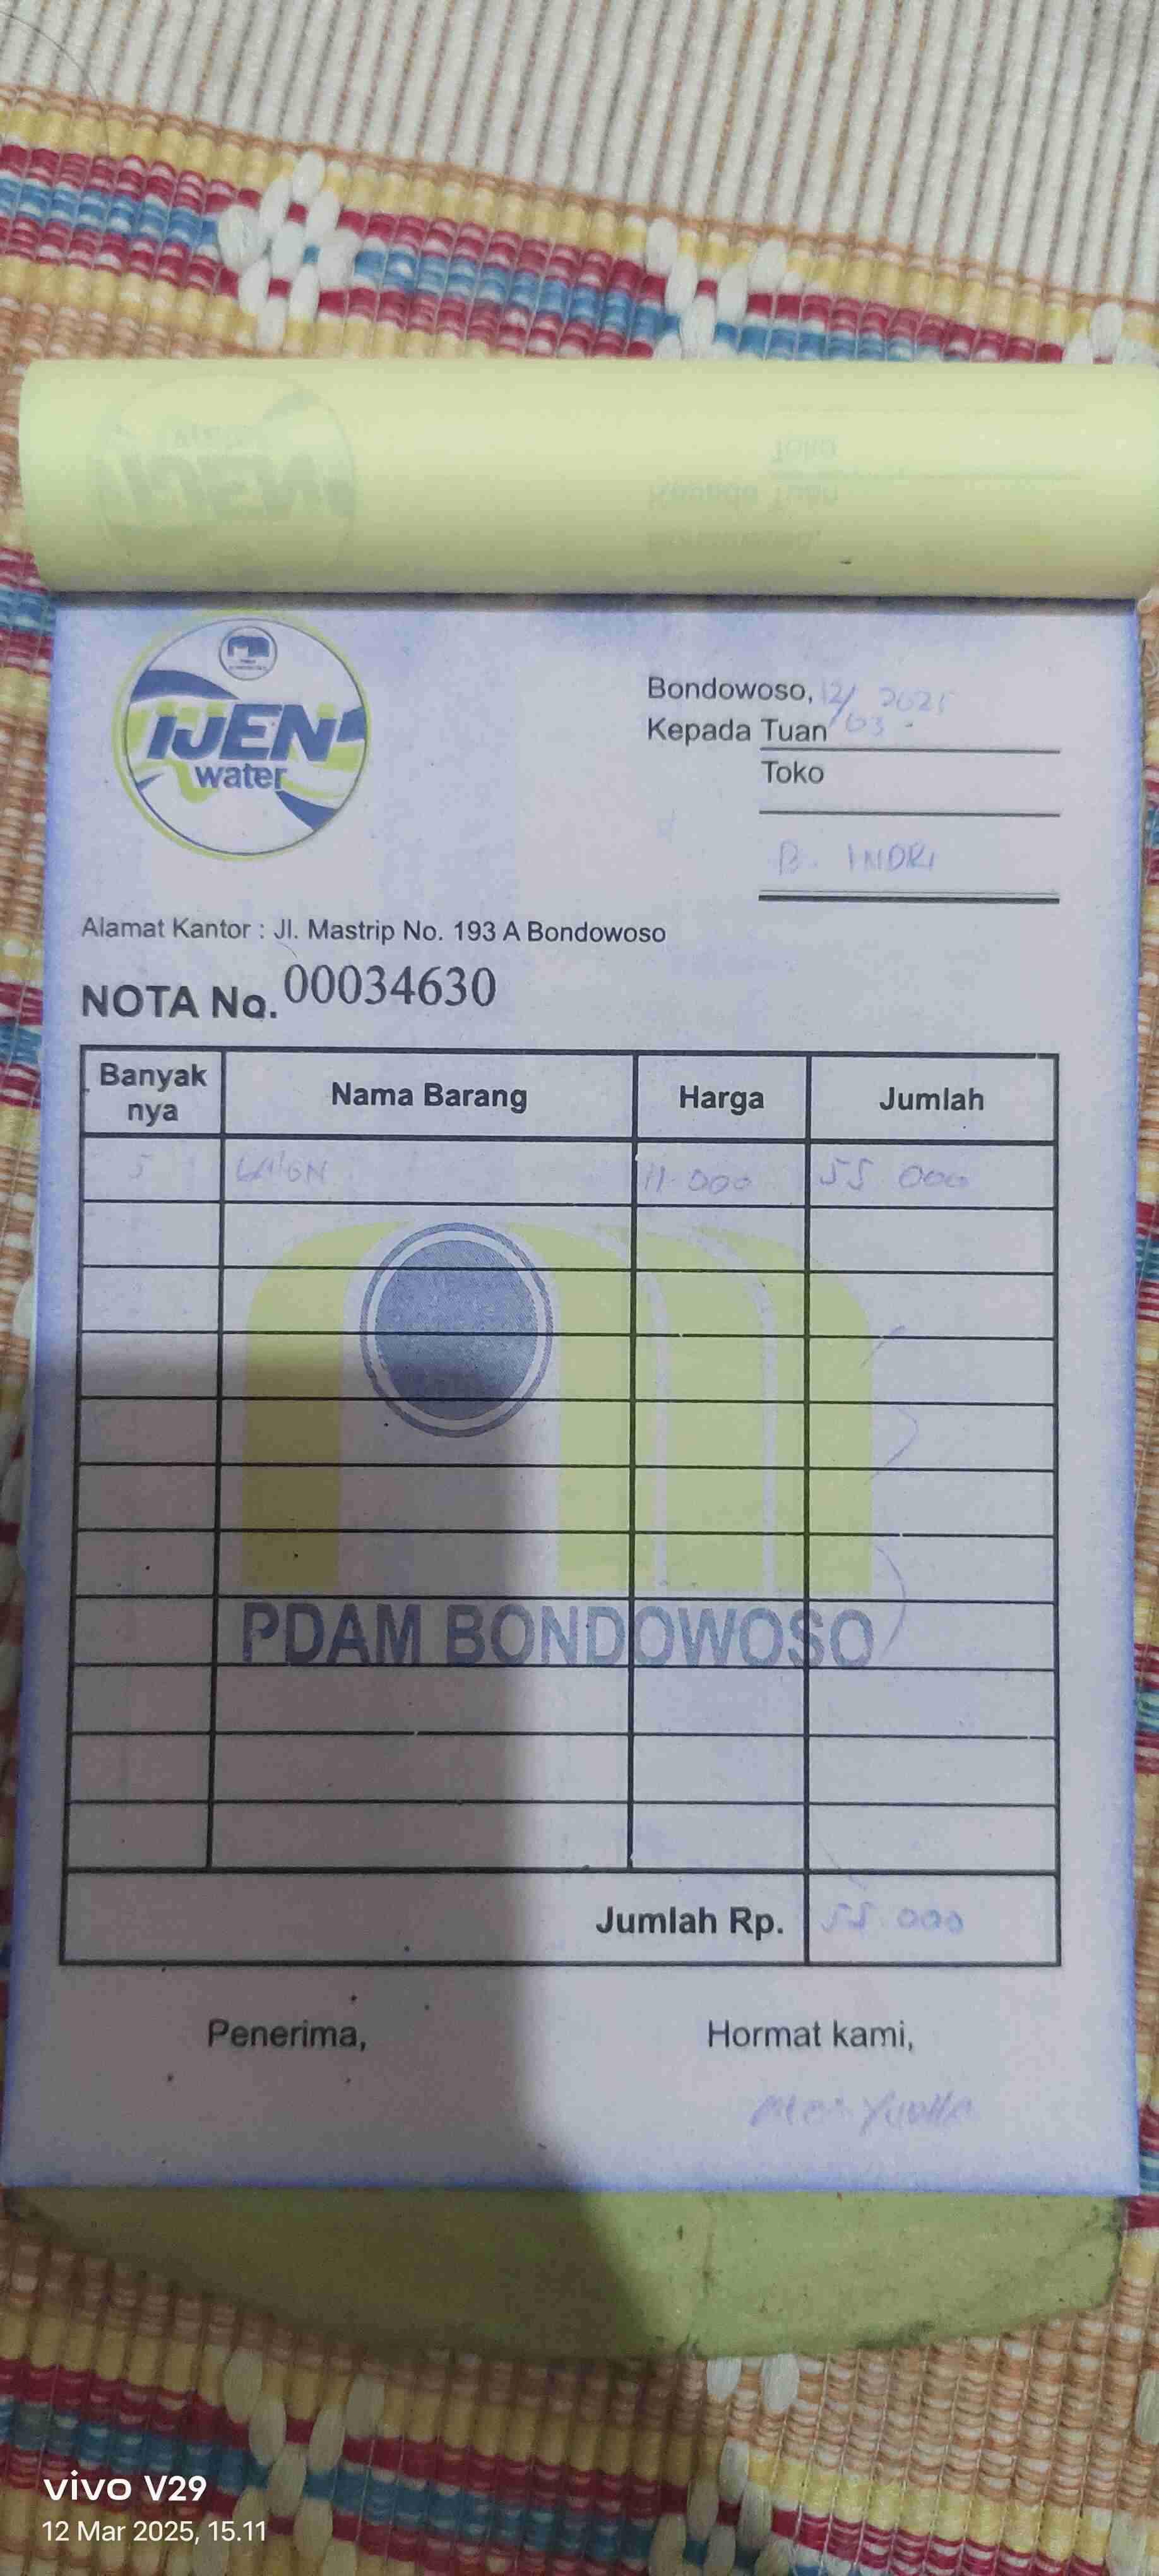 IJEN
water
Bondowoso, 12/03 2025
Kepada Tuan
Toko
B. INDRI
Alamat Kantor : Jl. Mastrip No. 193 A Bondowoso
NOTA No. 00034630
Banyak nya Nama Barang Harga Jumlah
5 11.000 55 000
PDAM BONDOWOSO
Jumlah Rp. 55.000
Penerima, Hormat kami,
vivo V29
12 Mar 2025, 15.11